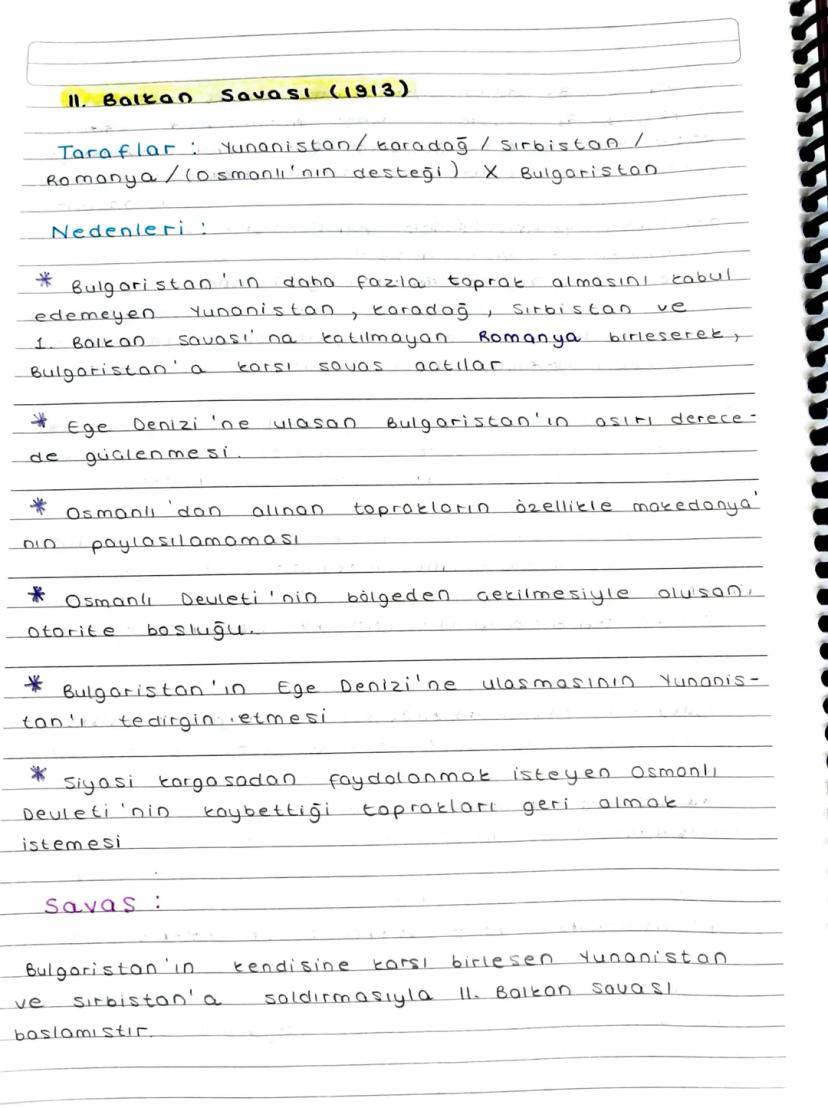 II. Balkan Savası (1913)
Taraflar : Yunanistan / Karadağ / Sırbistan /
Romanya / (Osmanlı'nın desteği) X Bulgaristan
Nedenleri :
* Bulgaristan'ın daha fazla toprak almasını kabul
edemeyen Yunanistan, Karadağ, Sırbistan ve
1. Balkan savası'na katılmayan Romanya birleserek,
Bulgaristan'a karsı savas actılar
* Ege Denizi'ne ulasan Bulgaristan'ın asırı derece-
de güclenmesi.
* Osmanlı'dan alınan toprakların özellikle makedonya'
nın paylasılamaması
* Osmanlı Devleti'nin bölgeden cekilmesiyle olusan
otorite boslugu.
* Bulgaristan'ın Ege Denizi'ne ulasmasının Yunanis-
tan'ı tedirgin etmesi
* Siyasi kargasadan faydalanmak isteyen Osmanlı
Devleti'nin kaybettiği toprakları geri almak
istemesi
Savas :
Bulgaristan'ın kendisine karsı birlesen Yunanistan
ve Sırbistan'a saldırmasıyla II. Balkan Savası
baslamıstır.